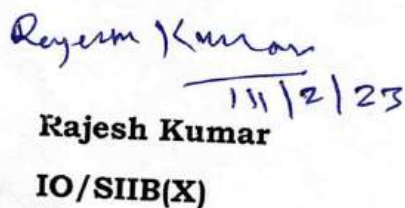 Rajesh Kumar
Rajesh Kumar
IO/SIIB(X)